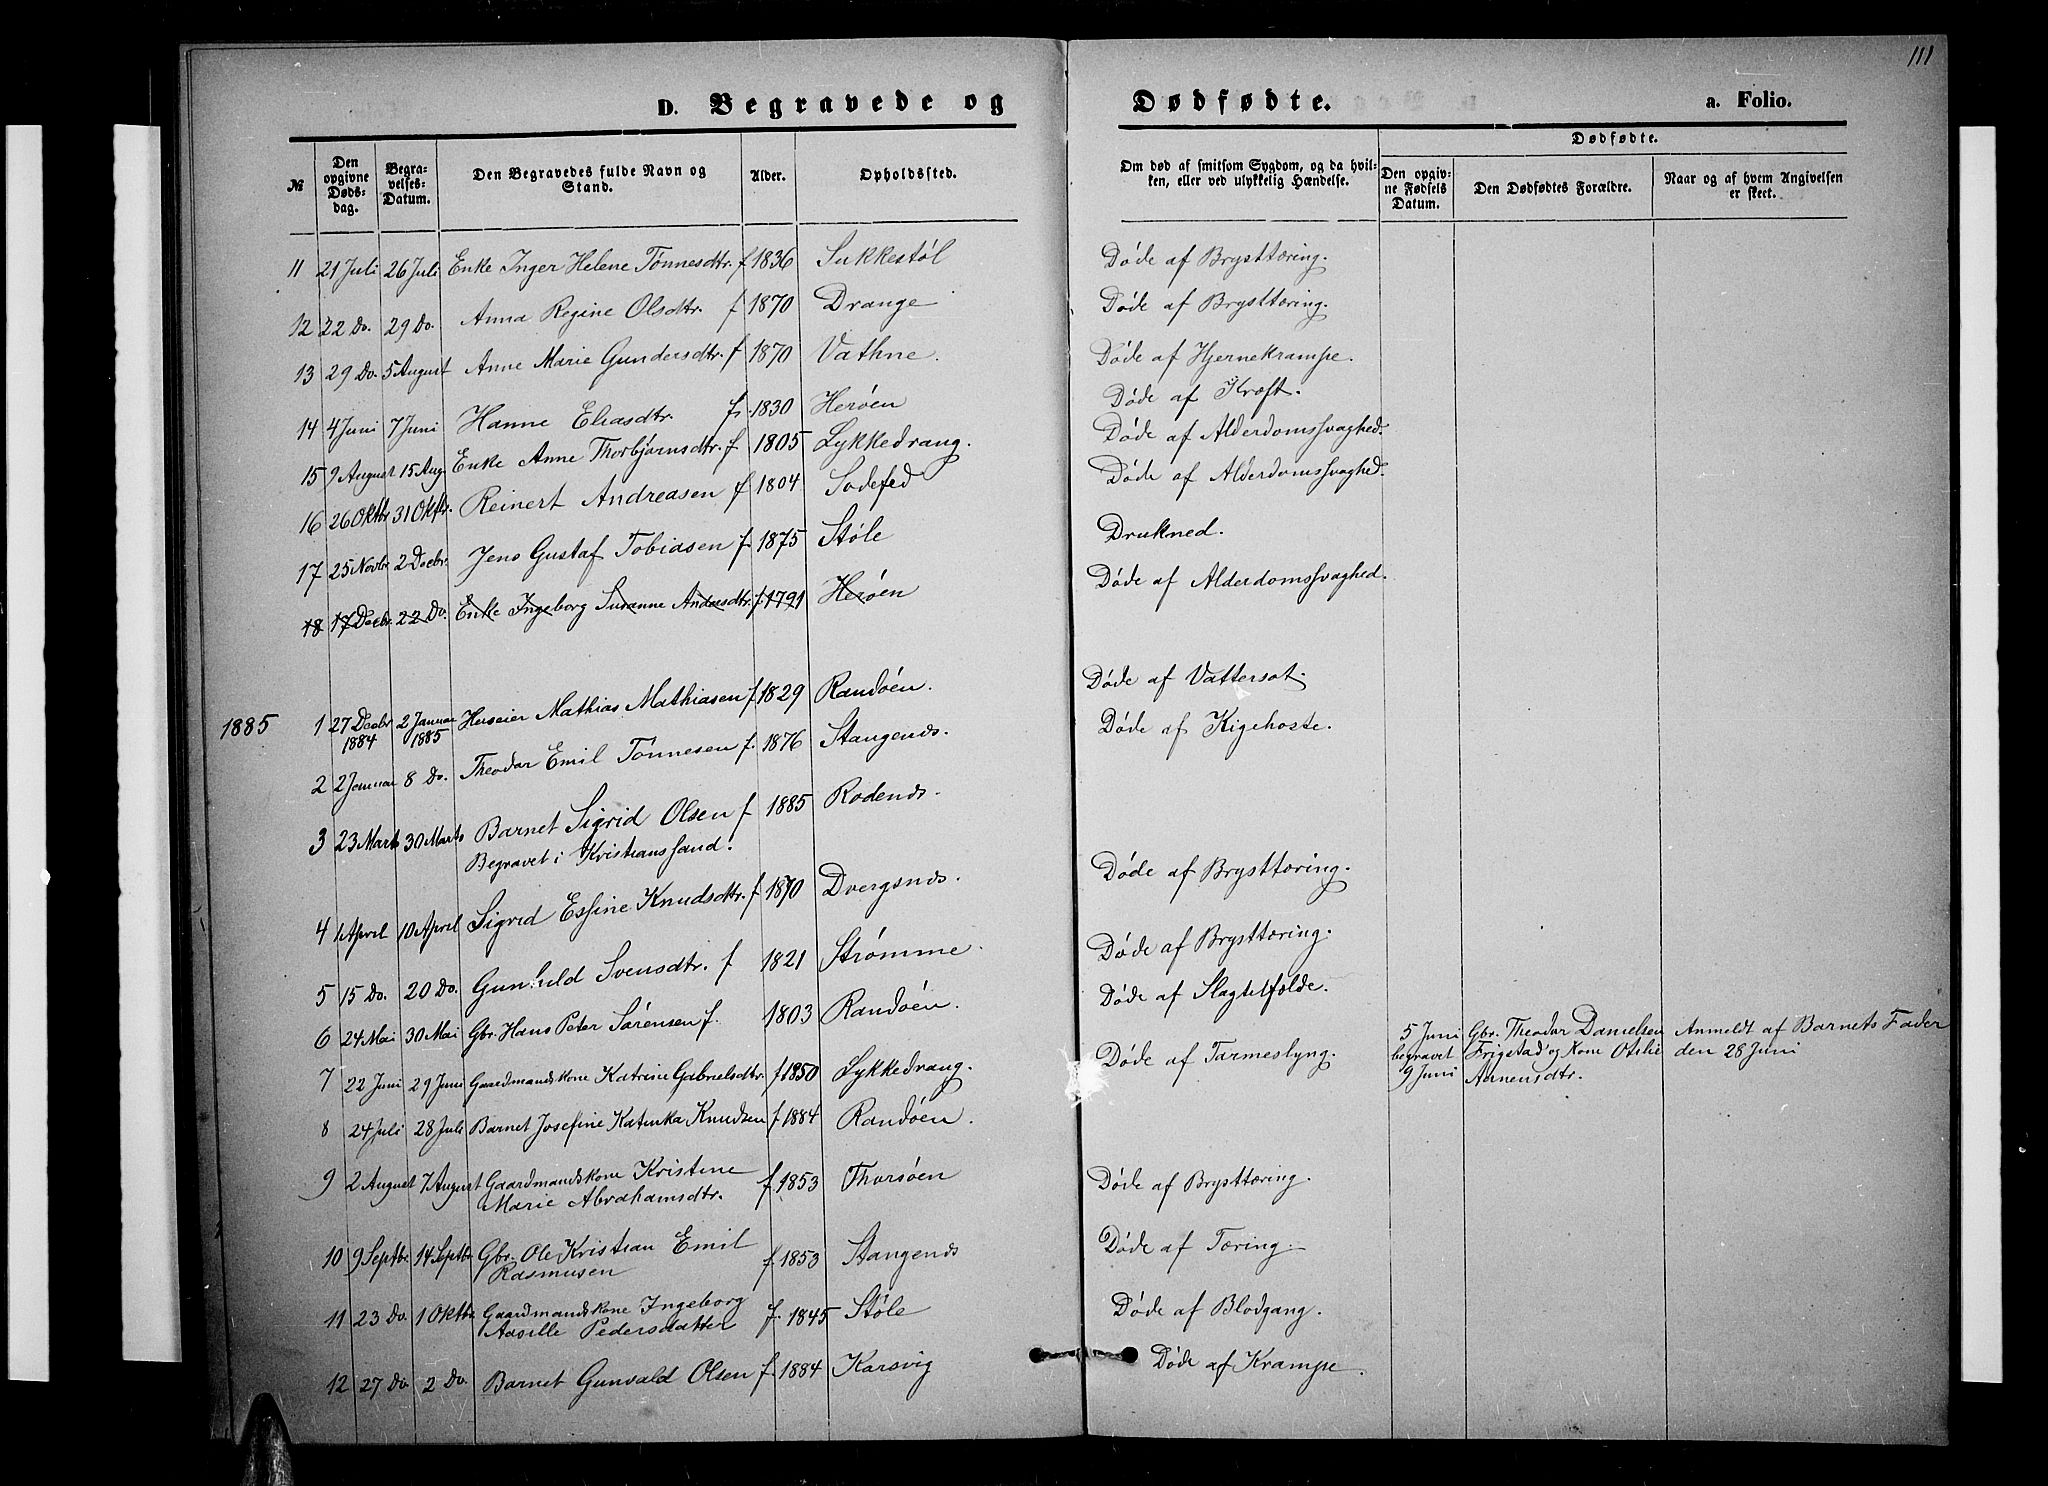 111
D. Begravede og Dødfødte. a. Folio.
№ Den opgivne Dødsdag. Begravelses-Datum. Den Begravedes fulde Navn og Stand. Alder. Opholdssted. Om død af smitsom Sygdom, og da hvilken, eller ved ulykkelig Hændelse. Dødfødte. Den opgivne Fødsels Datum. Den Dødfødtes Forældre. Naar og af hvem Angivelsen er skeet.
11 21 Juli 26 Juli Enke Inger Helene Tønnesdtr. f 1836 Sukkestøl Døde af Brysttæring.
12 22 Do. 29 Do. Anna Regine Olsdtr. f 1870 Drange Døde af Brysttæring.
13 29 Do. 5 August Anne Marie Gundersdtr. f 1870 Vathne. Døde af Hjernekrampe.
14 4 Juni 7 Juni Hanne Eliasdtr. f. 1830 Herøen Døde af Kræft.
15 9 August 15 Aug Enke Anne Thorbjørnsdtr. f 1805 Lykkedrang. Døde af Alderdomssvaghed.
16 26 Oktbr 31 Oktbr. Reinert Andreasen f 1804 Sodefed Døde af Alderdomssvaghed.
17 25 Novbr 2 Decbr. Jens Gustaf Tobiasen f. 1875 Støle Drukned.
18 17 Decbr. 22 Do. Enke Ingeborg Susanne Andersdtr. f 1791 Herøen Døde af Alderdomssvaghed.
1885 1 27 Decbr 1884 2 Januar 1885 Huseier Mathias Mathiasen f 1829 Randøen. Døde af Vattersot.
2 2 Januar 8 Do. Theodor Emil Tønnesen f. 1876 Stangenes. Døde af Kigehoste.
3 23 Marts 30 Marts Barnet Sigrid Olsen f 1885 Rodenes.
Begravet i Kristianssand.
4 1 April 10 April Sigrid Essine Knudsdtr. f 1870 Dvergsnes. Døde af Brysttæring.
5 15 Do. 20 Do. Gunhild Svensdtr. f 1821 Strømme. Døde af Brysttæring.
6 24 Mai 30 Mai Gbr. Hans Peter Sørensen f. 1803 Randøen. Døde af Slagtelfælde.
5 Juni Gbr. Theodor Danielsen Anmeldt af Barnets Fader
begravet Frigstad og Kone Otilie den 28 Juni
9 Juni Aanensdtr.
7 22 Juni 29 Juni Gaardmandskone Katrine Gabrielsdtr. f 1850 Lykkedrang. Døde af Tarmeslyng.
8 24 Juli 28 Juli Barnet Josefine Katinka Knudsen f 1884 Randøen.
9 2 August 7 August Gaardmandskone Kristine
Marie Abrahamsdtr. f. 1853 Thorsøen Døde af Brysttæring.
10 9 Septbr. 14 Septbr. Gbr. Ole Kristian Emil
Rasmusen f. 1853 Stangenes Døde af Tæring.
11 23 Do. 1 Oktbr. Gaardmandskone Ingeborg
Aasille Pedersdatter f. 1845 Støle Døde af Blodgang.
12 27 Do 2 Do. Barnet Gunvald Olsen f. 1884 Korsvig Døde af Krampe.